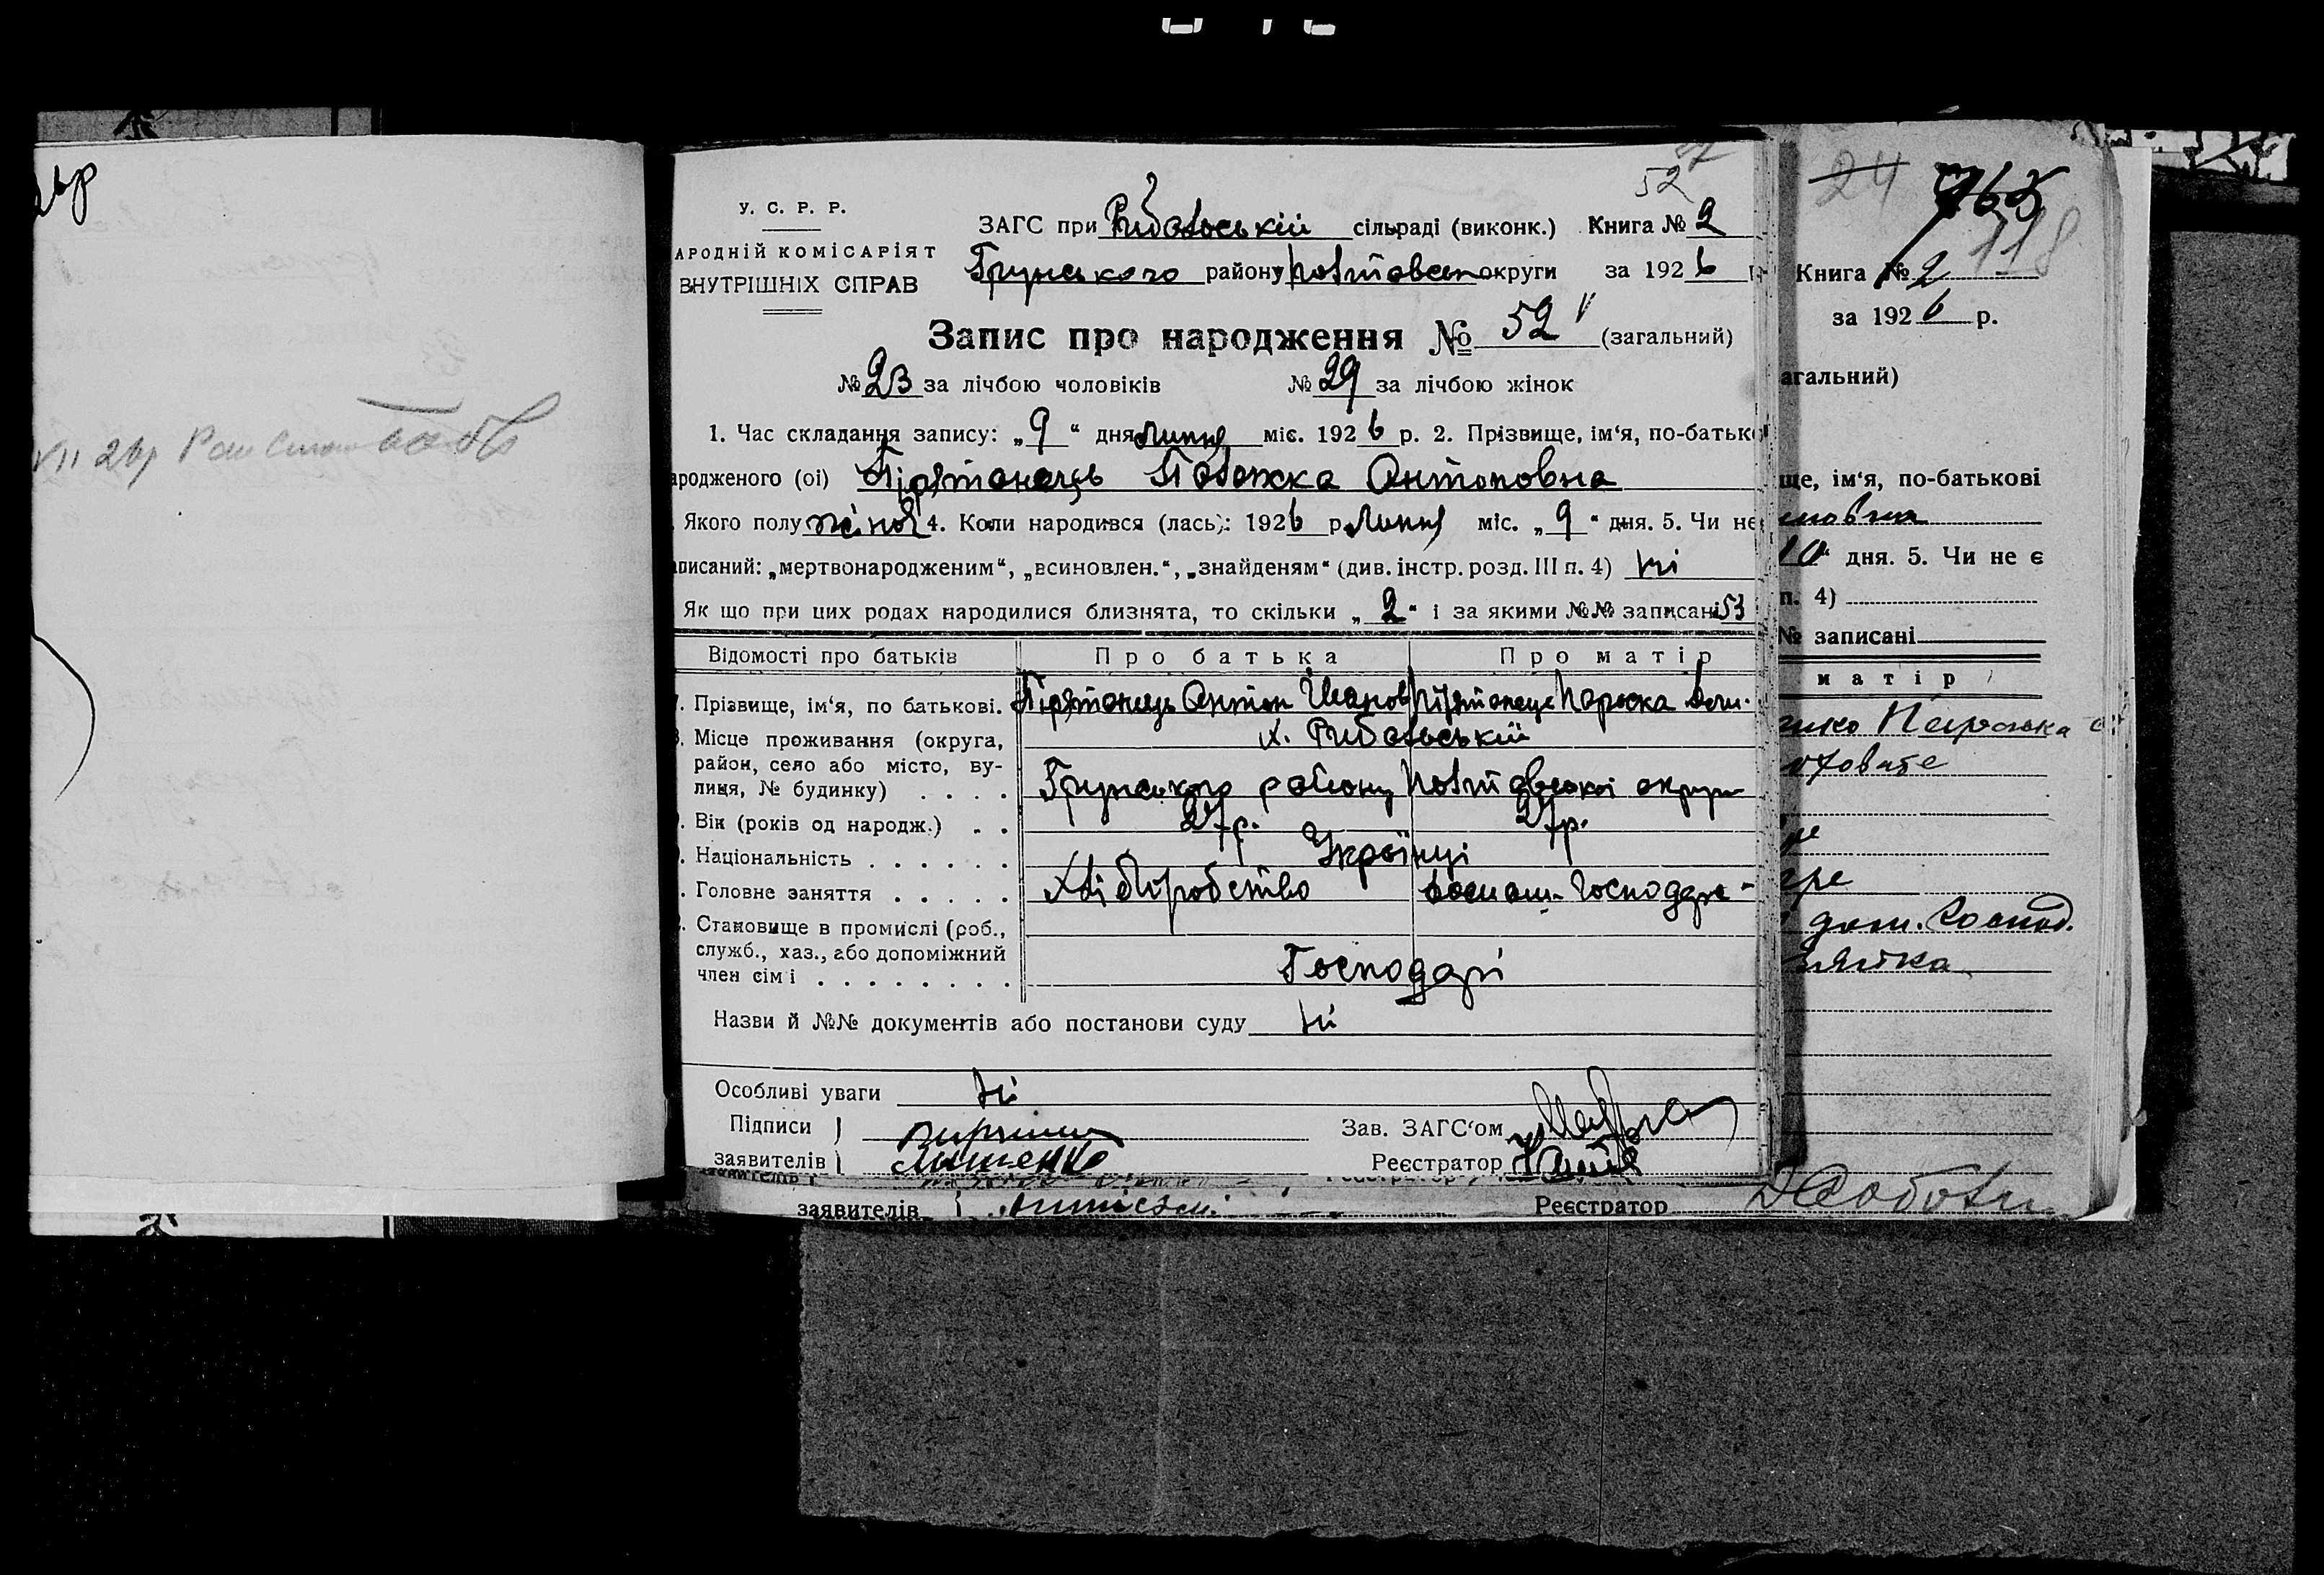 52
У. С. Р. Р.
АРОДНІЙ КОМІСАРІЯТ
ВНУТРІШНІХ СПРАВ
ЗАГС при Рибальській сільраді (виконк.) Книга № 2
Грунського району Полтавськ округи за 1926
Запис про народження № 52 (загальний)
№ 23 за лічбою чоловіків № 29 за лічбою жінок
1. Час складання запису: „9“ дня липня міс. 1926 р. 2. Прізвище, ім‘я, по-батько
ародженого (ої) Пірятонець Палажка Антоновна
Якого полу жіноч 4. Коли народився (лась): 1926 р. липня міс. „9“ дня. 5. Чи не
аписаний: „мертвонародженим“, „всиновлен.“, „знайденям“ (див. інстр. розд. III п. 4) ні
Як що при цих родах народилися близнята, то скільки „2“ і за якими №№ записані 53
Відомості про батьків Про батька Про матір
Прізвище, ім‘я, по батькові. Пірятонець Антон Іванов Пірятонець Параска
Місце проживання (округа, х. Рибальській
район, село або місто, ву-
лиця, № будинку) . . . . Грунського району Полтавської округи
Вік (років од народж.) . . 27 р. 27 р.
Національність . . . . . . Українці
Головне заняття . . . . . Хліборобство Господар-
Становище в промислі (роб.,
служб., хаз., або допоміжний
член сім і . . . . . . . . Господарі
Назви й №№ документів або постанови суду ні
Особливі уваги ні
Підписи Зав. ЗАГС‘ом
заявителів Реєстратор
заявителів Реєстратор
24
118
Книга № 2
за 1926 р.
агальний)
ще, ім‘я, по-батькові
10“ дня. 5. Чи не є
п. 4)
№ записані
матір
дом. Господ.